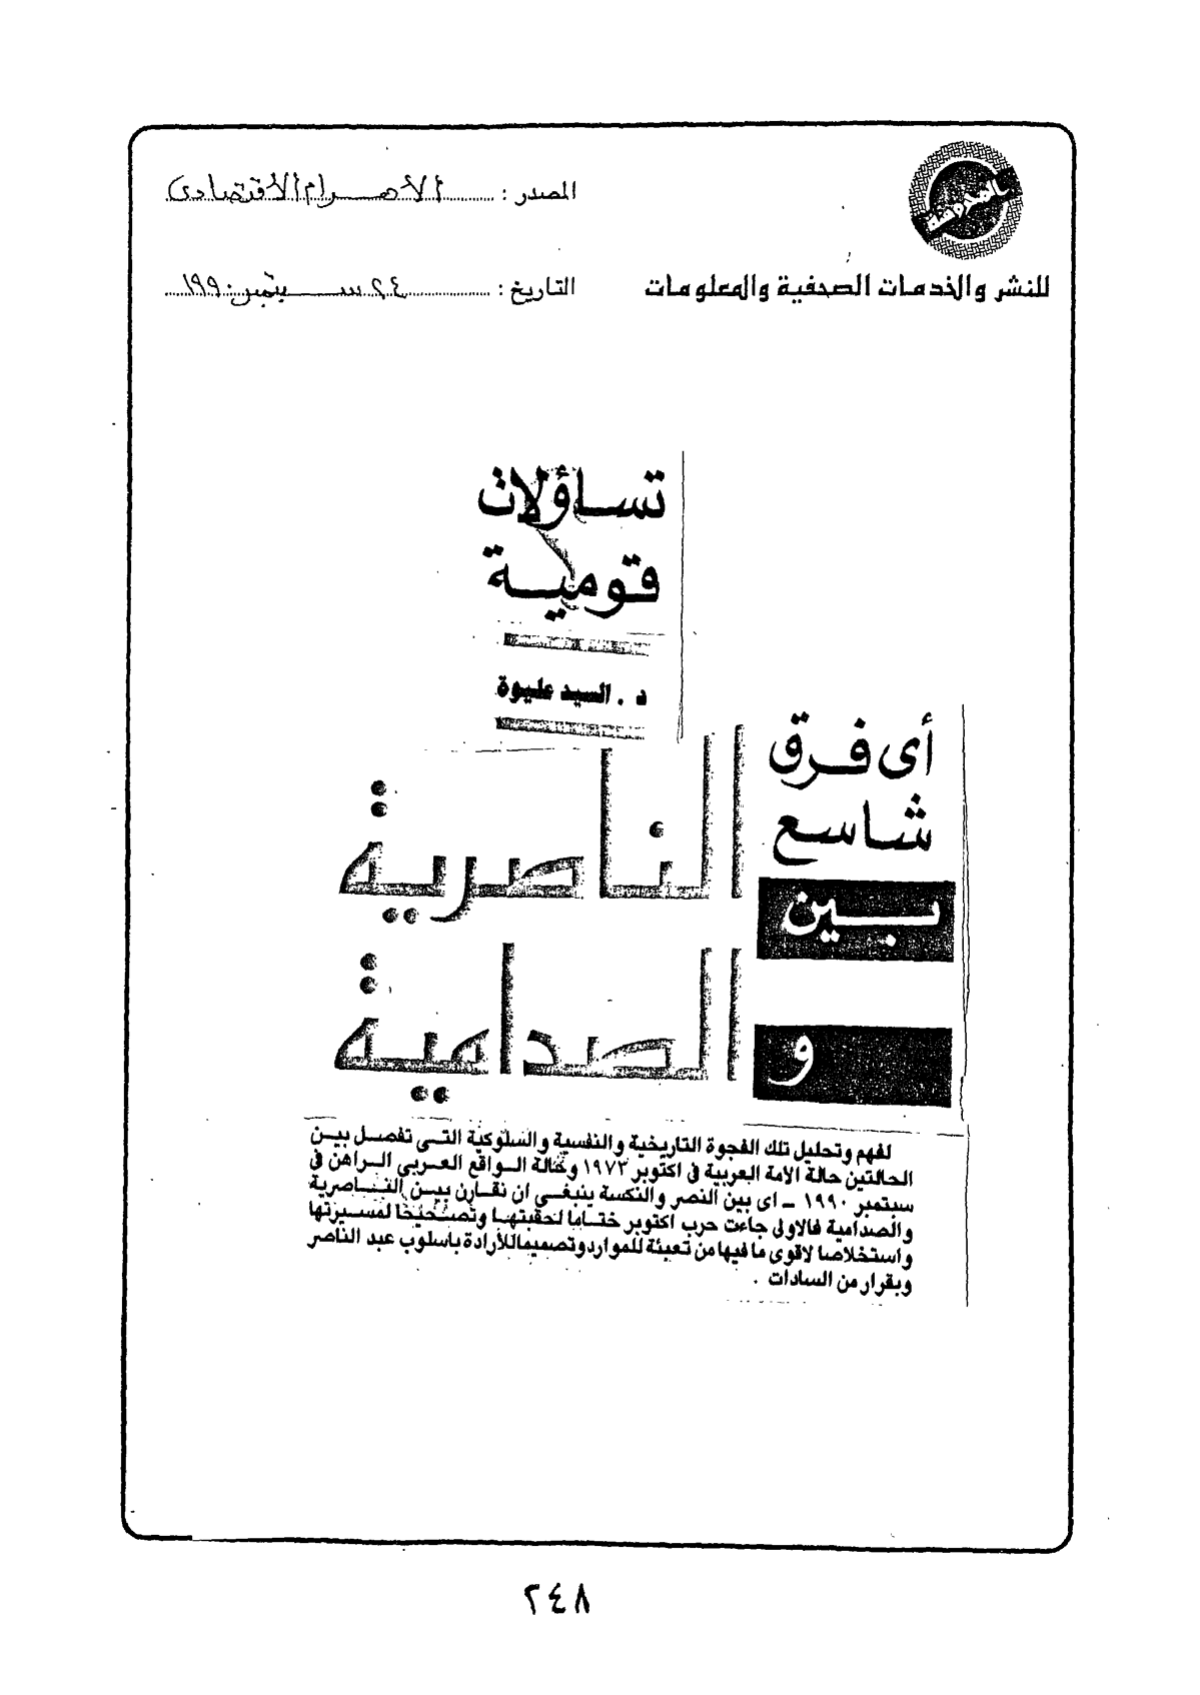 المصدر : الأهرام الاقتصادى
للنشر والخدمات الصحفية والمعلومات
التاريخ : ٢٤ سبتمبر ١٩٩٠
تساؤلات
قومية
د . السيد عليوة
أى فرق
شاسع
بين
الناصرية
و
الصدامية
لفهم وتحليل تلك الفجوة التاريخية والنفسية والسلوكية التى تفصل بين
الحالتين حالة الأمة العربية فى اكتوبر ١٩٧٣ وحالة الواقع العربى الراهن فى
سبتمبر ١٩٩٠ ـ اى بين النصر والنكسة ينبغى ان نقارن بين الناصرية
والصدامية فالاولى جاءت حرب اكتوبر ختاما لحقبتها وتصحيحا لمسيرتها
واستخلاصا لاقوى ما فيها من تعبئة للموارد وتصميما للأرادة باسلوب عبد الناصر
وبقرار من السادات .
٢٤٨